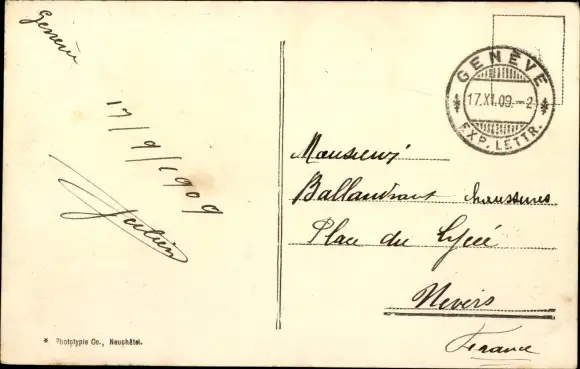 Genève
17/9/1909
Julien
GENÈVE
17.XI.09.-2
EXP. LETTR.
Monsieur
Ballandrant chaussures
Place du Lycée
Nevers
France
* Phototypie Co., Neuchâtel.